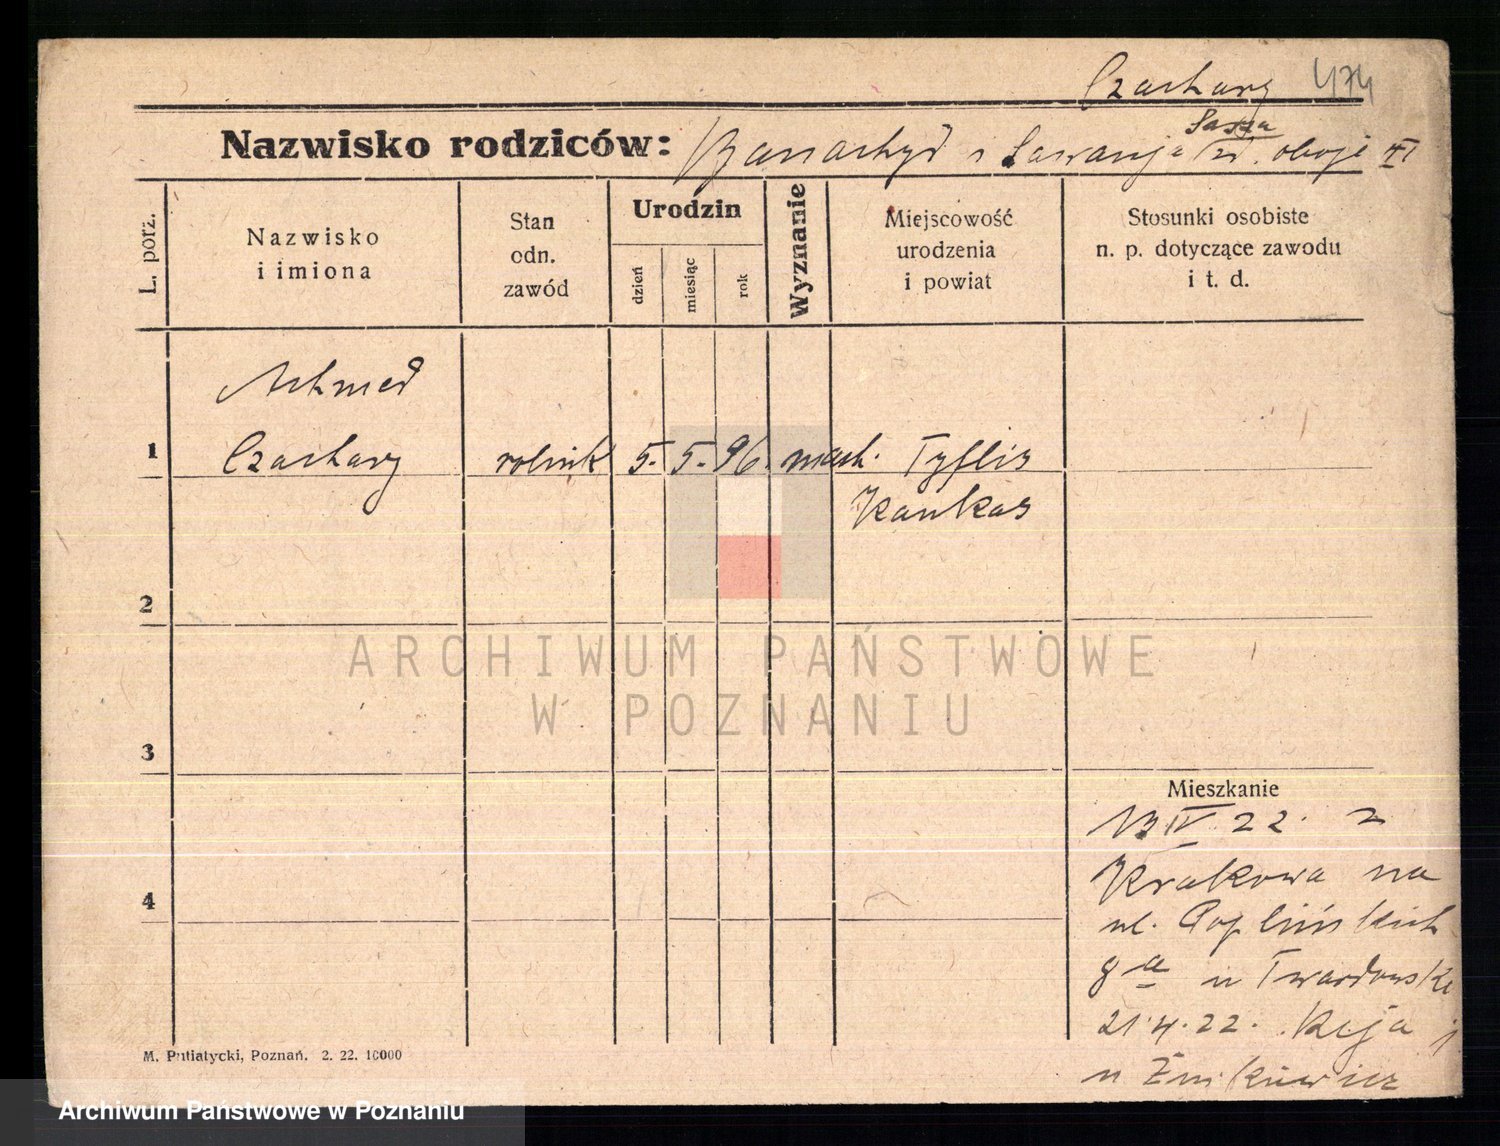 Czachary 474
Sasza
Nazwisko rodziców: Banachyd i Sawanja zd. oboje
L. porz.
Nazwisko
i imiona
Stan
odn.
zawód
Urodzin
dzień
miesiąc
rok
Wyznanie
Miejscowość
urodzenia
i powiat
Stosunki osobiste
n. p. dotyczące zawodu
i t. d.
Achmed
1 Czachary rolnik 5. 5. 96. mach. Tyflis
Kaukas
2
ARCHIWUM PAŃSTWOWE
W POZNANIU
3
Mieszkanie
13 IV. 22. z
Krakowa na
4
ul. Poplińskich
8a u Twardowski
21.4.22. Reja 1
u Żnikiewicz
M. Putiatycki, Poznań. 2. 22. 10000
Archiwum Państwowe w Poznaniu